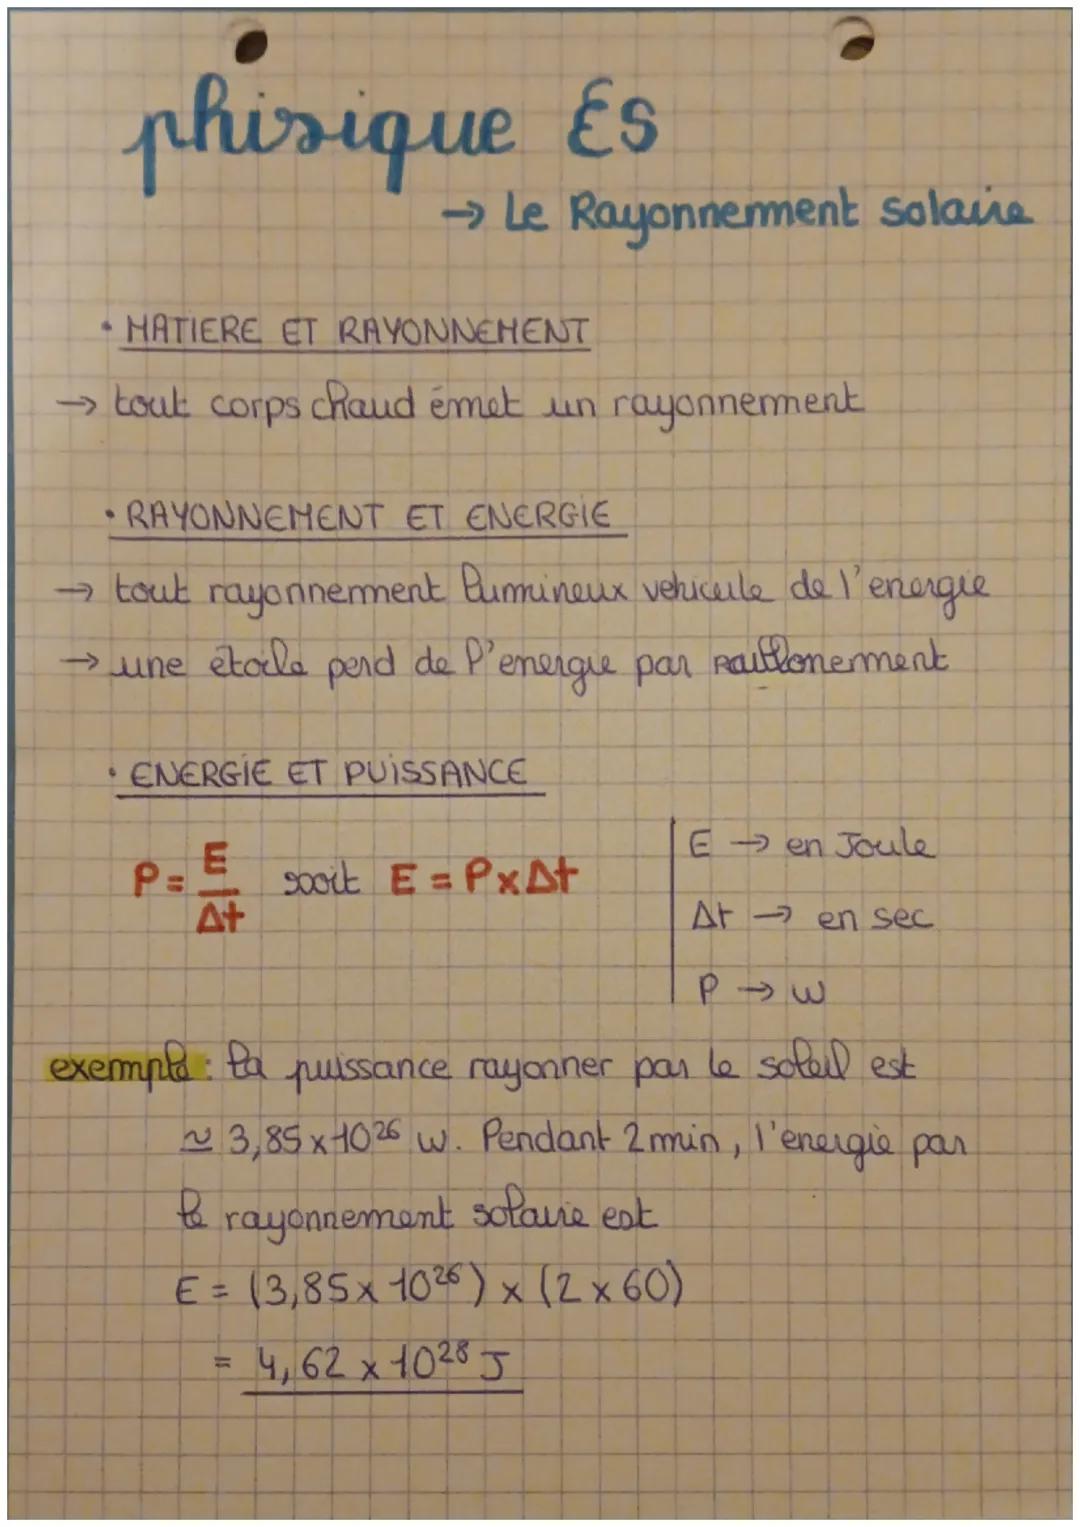 phisique ES
→ Le Rayonnement solaire
• MATIERE ET RAYONNEMENT
→ tout corps chaud émet un rayonnement
• RAYONNEMENT ET ENERGIE
→ tout rayonnement lumineux vehicule de l'energie
→ une étoile perd de l'energie par
• ENERGIE ET PUISSANCE
P = E/Δt soit E = P x Δt
E → en Joule
Δt → en sec
P → W
exemple : la puissance rayonner par le soleil est
≃ 3,85 x 10²⁶ W. Pendant 2 min, l'energie par
le rayonnement solaire est
E = (3,85 x 10²⁶) x (2 x 60)
= 4,62 x 10²⁸ J